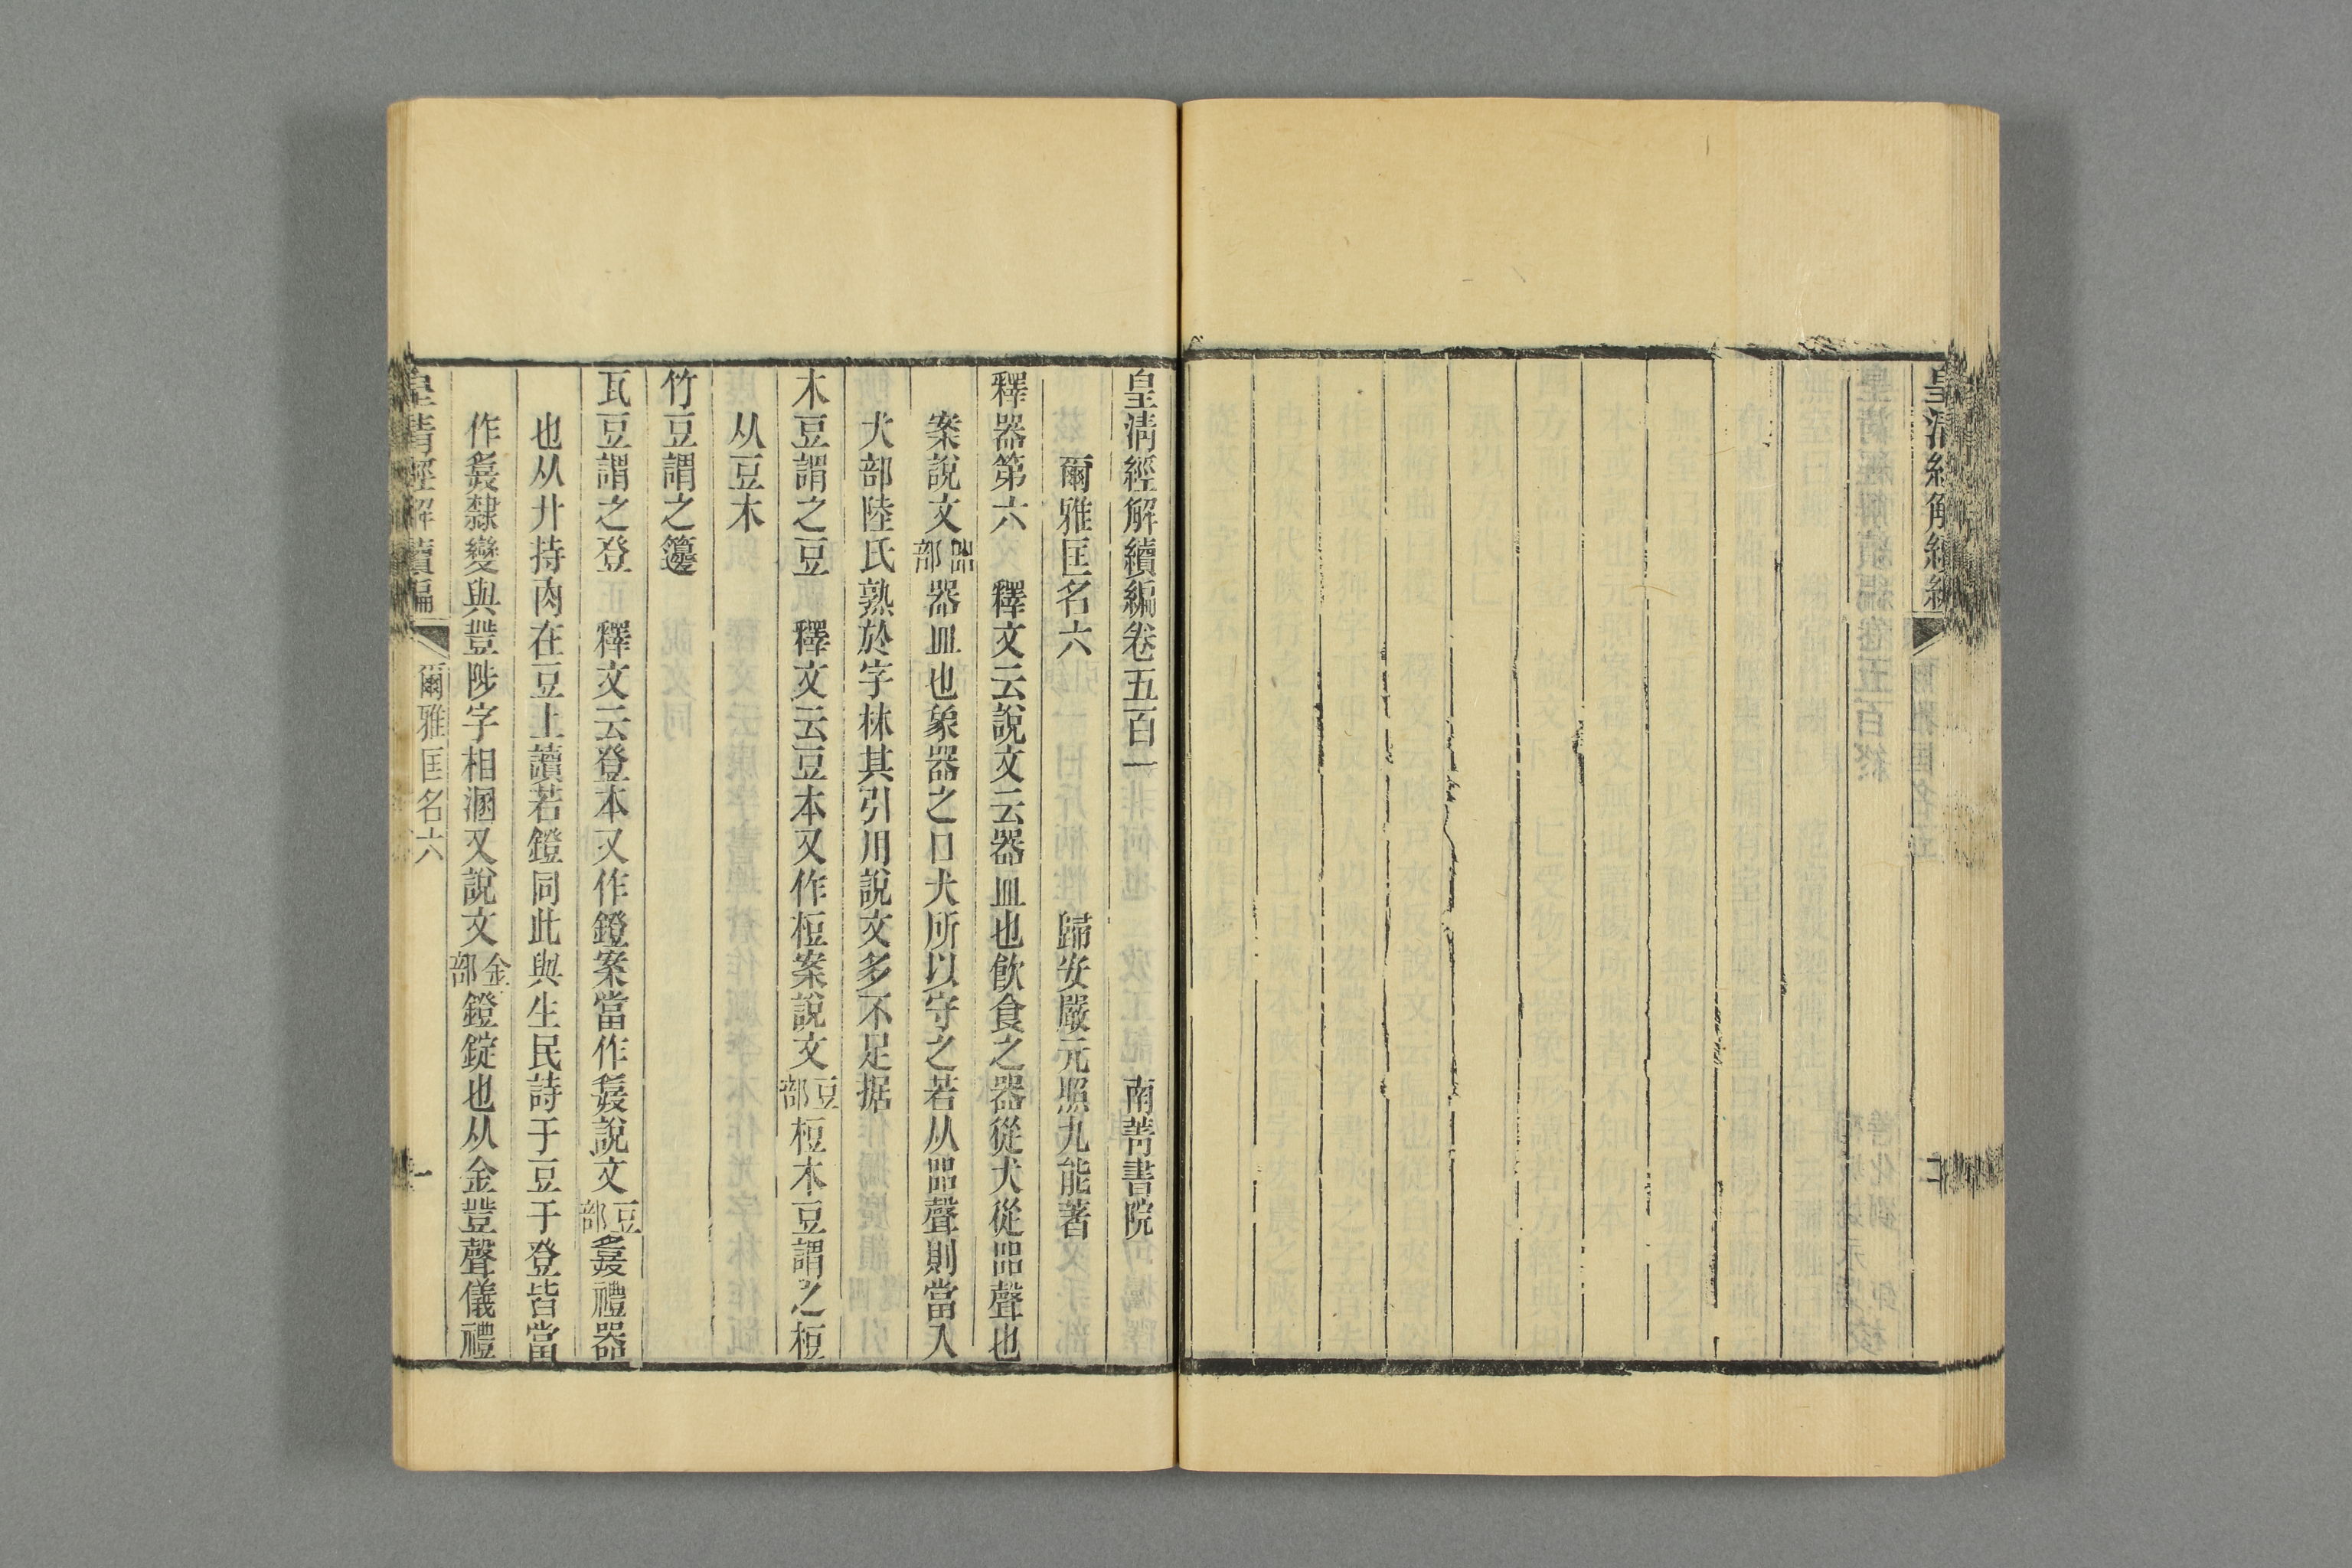 皇清經解續編
爾雅匡名五
皇清經解續編卷五百一 南菁書院
爾雅匡名六 歸安嚴元照九能著
釋器第六 釋文云說文云器皿也飲食之器從犬從㗊聲也
案說文㗊部器皿也象器之口犬所以守之若从㗊聲則當入
犬部陸氏熟於字林其引用說文多不足据
木豆謂之豆 釋文云豆本又作梪案說文豆部梪木豆謂之梪
从豆木
竹豆謂之籩
瓦豆謂之登 釋文云登本又作鐙案當作䔲說文豆部䔲禮器
也从廾持肉在豆上讀若鐙同此與生民詩于豆于登皆當
作䔲隸變與豋陟字相溷又說文金部鐙錠也从金豋聲儀禮
皇清經解續編 爾雅匡名六 一